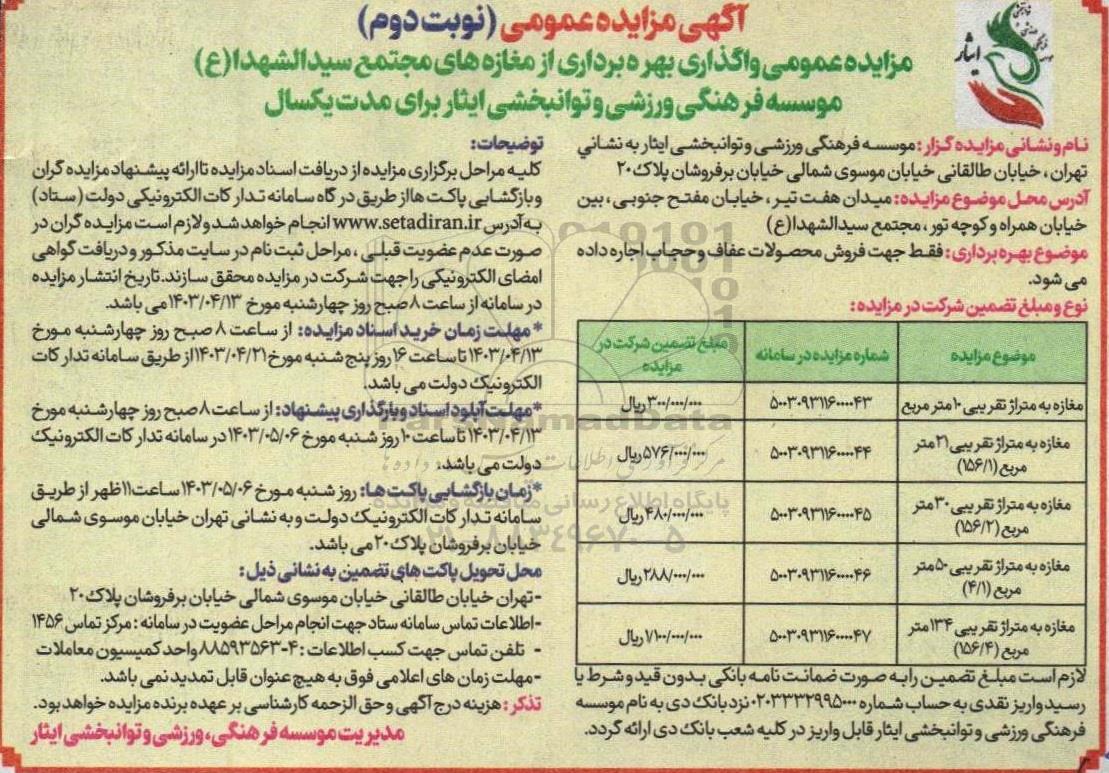 آگهی مزایده عمومی (نوبت دوم)
مزایده عمومی واگذاری بهره برداری از مغازه های مجتمع سیدالشهدا(ع)
موسسه فرهنگی ورزشی و توانبخشی ایثار برای مدت یکسال
ایثار
نام و نشانی مزایده گزار: موسسه فرهنگی ورزشی و توانبخشی ایثار به نشانی
تهران، خیابان طالقانی خیابان موسوی شمالی خیابان برفروشان پلاک ۲۰
آدرس محل موضوع مزایده: میدان هفت تیر، خیابان مفتح جنوبی، بین
خیابان همراه و کوچه تور، مجتمع سیدالشهدا(ع)
موضوع بهره برداری: فقط جهت فروش محصولات عفاف و حجاب اجاره داده
می شود.
نوع و مبلغ تضمین شرکت در مزایده:
موضوع مزایده | شماره مزایده در سامانه | مبلغ تضمین شرکت در مزایده
مغازه به متراژ تقریبی ۱۰ متر مربع | ۵۰۰۳۰۹۳۱۱۶۰۰۰۰۴۳ | ۳۰۰/۰۰۰/۰۰۰ ریال
مغازه به متراژ تقریبی ۲۱ متر مربع (۱۵۶/۱) | ۵۰۰۳۰۹۳۱۱۶۰۰۰۰۴۴ | ۵۷۶/۰۰۰/۰۰۰ ریال
مغازه به متراژ تقریبی ۳۰ متر مربع (۱۵۶/۲) | ۵۰۰۳۰۹۳۱۱۶۰۰۰۰۴۵ | ۴۸۰/۰۰۰/۰۰۰ ریال
مغازه به متراژ تقریبی ۵۰ متر مربع (۴/۱) | ۵۰۰۳۰۹۳۱۱۶۰۰۰۰۴۶ | ۲۸۸/۰۰۰/۰۰۰ ریال
مغازه به متراژ تقریبی ۱۳۴ متر مربع (۱۵۶/۴) | ۵۰۰۳۰۹۳۱۱۶۰۰۰۰۴۷ | ۷/۱۰۰/۰۰۰/۰۰۰ ریال
لازم است مبلغ تضمین را به صورت ضمانت نامه بانکی بدون قید و شرط یا
رسید واریز نقدی به حساب شماره ۰۲۰۳۳۳۲۹۹۵۰۰۰ نزد بانک دی به نام موسسه
فرهنگی ورزشی و توانبخشی ایثار قابل واریز در کلیه شعب بانک دی ارائه گردد.
توضیحات:
کلیه مراحل برگزاری مزایده از دریافت اسناد مزایده تا ارائه پیشنهاد مزایده گران
و بازگشایی پاکت ها از طریق درگاه سامانه تدارکات الکترونیکی دولت (ستاد)
به آدرس www.setadiran.ir انجام خواهد شد و لازم است مزایده گران در
صورت عدم عضویت قبلی، مراحل ثبت نام در سایت مذکور و دریافت گواهی
امضای الکترونیکی را جهت شرکت در مزایده محقق سازند. تاریخ انتشار مزایده
در سامانه از ساعت ۸ صبح روز چهارشنبه مورخ ۱۴۰۳/۰۴/۱۳ می باشد.
*مهلت زمان خرید اسناد مزایده: از ساعت ۸ صبح روز چهارشنبه مورخ
۱۴۰۳/۰۴/۱۳ تا ساعت ۱۶ روز پنج شنبه مورخ ۱۴۰۳/۰۴/۲۱ از طریق سامانه تدارکات
الکترونیک دولت می باشد.
*مهلت آپلود اسناد و بارگذاری پیشنهاد: از ساعت ۸ صبح روز چهارشنبه مورخ
۱۴۰۳/۰۴/۱۳ تا ساعت ۱۰ روز شنبه مورخ ۱۴۰۳/۰۵/۰۶ در سامانه تدارکات الکترونیک
دولت می باشد.
*زمان بازگشایی پاکت ها: روز شنبه مورخ ۱۴۰۳/۰۵/۰۶ ساعت ۱۱ ظهر از طریق
سامانه تدارکات الکترونیک دولت و به نشانی تهران خیابان موسوی شمالی
خیابان برفروشان پلاک ۲۰ می باشد.
محل تحویل پاکت های تضمین به نشانی ذیل:
-تهران خیابان طالقانی خیابان موسوی شمالی خیابان برفروشان پلاک ۲۰
-اطلاعات تماس سامانه ستاد جهت انجام مراحل عضویت در سامانه: مرکز تماس ۱۴۵۶
- تلفن تماس جهت کسب اطلاعات: ۴-۸۸۵۹۳۵۶۳ واحد کمیسیون معاملات
-مهلت زمان های اعلامی فوق به هیچ عنوان قابل تمدید نمی باشد.
تذکر: هزینه درج آگهی و حق الزحمه کارشناسی بر عهده برنده مزایده خواهد بود.
مدیریت موسسه فرهنگی، ورزشی و توانبخشی ایثار